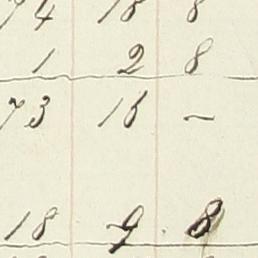 74 18 8
1 2 8
73 16 —
18 9 8